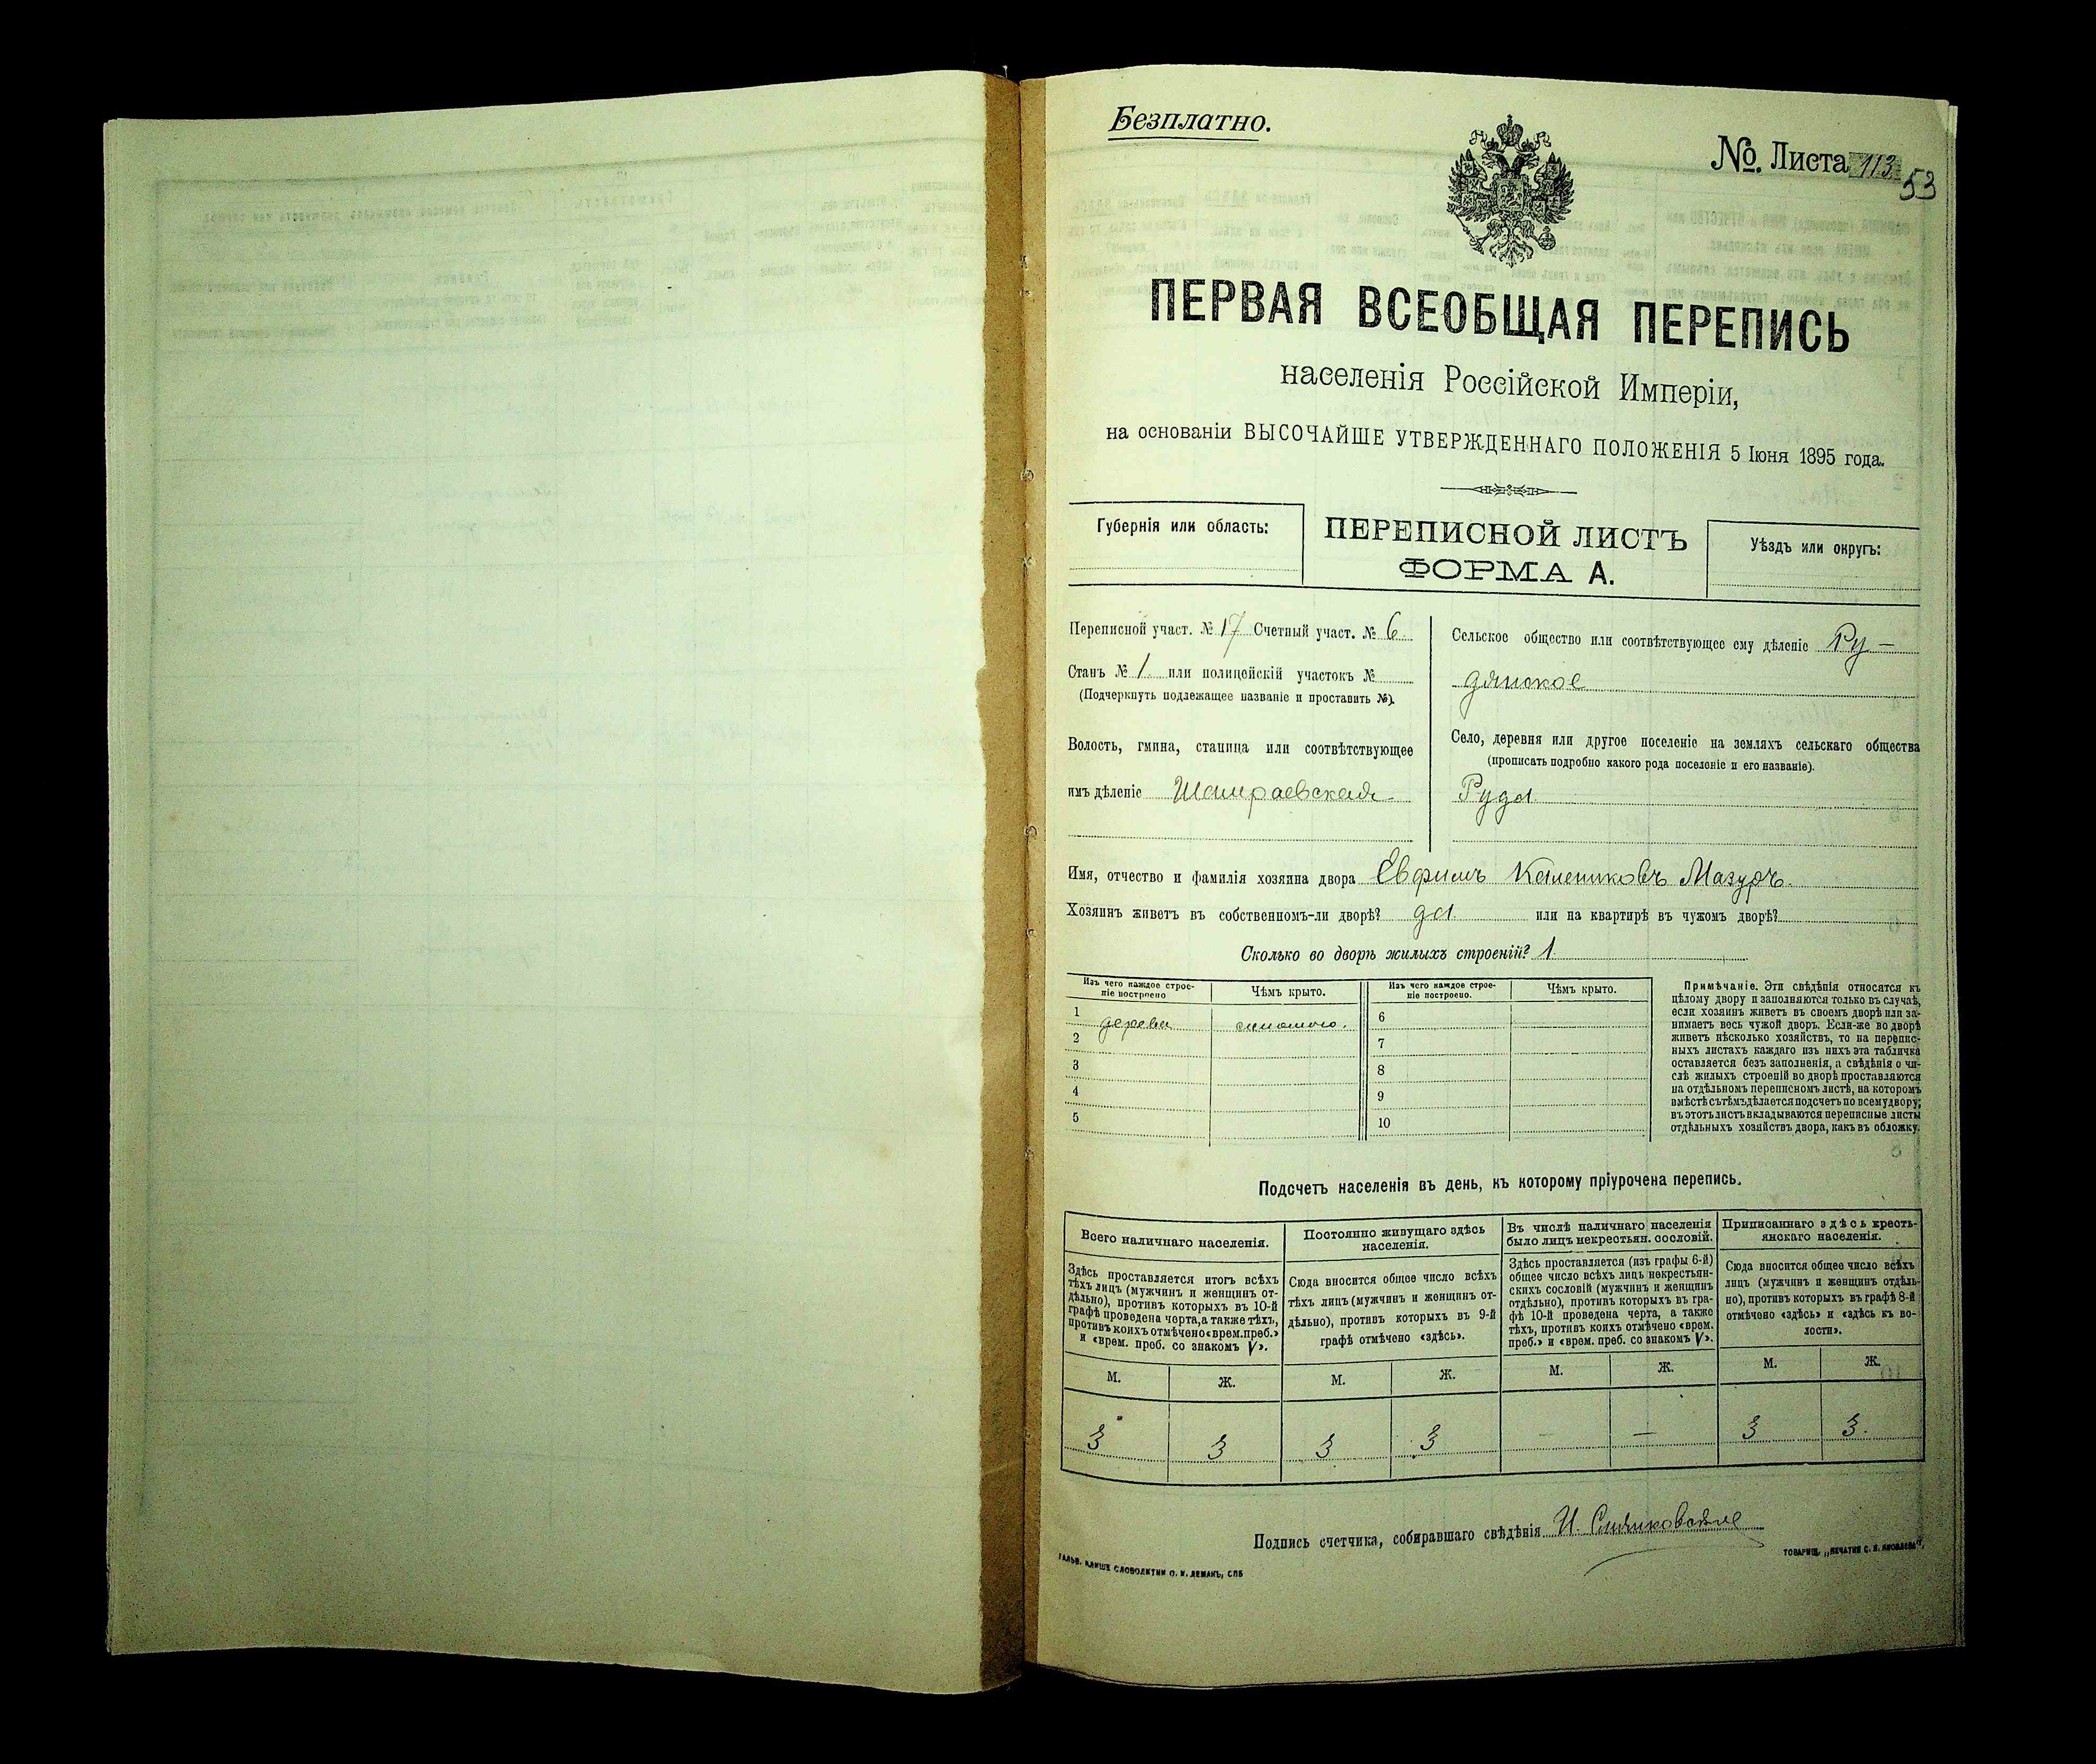 Безплатно.
№. Листа 113
53
ПЕРВАЯ ВСЕОБЩАЯ ПЕРЕПИСЬ
населенія Россійской Имперіи,
на основаніи ВЫСОЧАЙШЕ УТВЕРЖДЕННАГО ПОЛОЖЕНІЯ 5 Іюня 1895 года.
Губернія или область:
ПЕРЕПИСНОЙ ЛИСТЪ
ФОРМА А.
Уѣздъ или округъ:
Переписной участ. № 17 Счетный участ. № 6
Станъ № 1 или полицейскій участокъ №
(Подчеркнуть подлежащее названіе и проставить №).
Волость, гмина, станица или соотвѣтствующее
имъ дѣленіе Шамраевская
Сельское общество или соотвѣтствующее ему дѣленіе Ру-
дянское
Село, деревня или другое поселеніе на земляхъ сельскаго общества
(прописать подробно какого рода поселеніе и его названіе).
Руда
Имя, отчество и фамилія хозяина двора Евфимъ Мазуръ.
Хозяинъ живетъ въ собственномъ-ли дворѣ? да или на квартирѣ въ чужомъ дворѣ?
Сколько во дворѣ жилыхъ строеній? 1
Изъ чего каждое строе-
ніе построено
Чѣмъ крыто.
Изъ чего каждое строе-
ніе построено.
Чѣмъ крыто.
1 дерева соломою.
2
3
4
5
6
7
8
9
10
Примѣчаніе. Эти свѣдѣнія относятся къ
цѣлому двору и заполняются только въ случаѣ,
если хозяинъ живетъ въ своемъ дворѣ или за-
нимаетъ весь чужой дворъ. Если-же во дворѣ
живетъ нѣсколько хозяйствъ, то на перепис-
ныхъ листахъ каждаго изъ нихъ эта табличка
оставляется безъ заполненія, а свѣдѣнія о чи-
слѣ жилыхъ строеній во дворѣ проставляются
на отдѣльномъ переписномъ листѣ, на которомъ
вмѣстѣ съ тѣмъ дѣлается подсчетъ по всему двору;
въ этотъ листъ вкладываются переписные листы
отдѣльныхъ хозяйствъ двора, какъ въ обложку.
Подсчетъ населенія въ день, къ которому пріурочена перепись.
Всего наличнаго населенія.
Здѣсь проставляется итогъ всѣхъ
тѣхъ лицъ (мужчинъ и женщинъ от-
дѣльно), противъ которыхъ въ 10-й
графѣ проведена черта, а также тѣхъ,
противъ коихъ отмѣчено «врем. преб.»
и «врем. преб. со знакомъ V».
Постоянно живущаго здѣсь
населенія.
Сюда вносится общее число всѣхъ
тѣхъ лицъ (мужчинъ и женщинъ от-
дѣльно), противъ которыхъ въ 9-й
графѣ отмѣчено «здѣсь».
Въ числѣ наличнаго населенія
было лицъ некрестьян. сословій.
Здѣсь проставляется (изъ графы 6-й)
общее число всѣхъ лицъ некрестьян-
скихъ сословій (мужчинъ и женщинъ
отдѣльно), противъ которыхъ въ гра-
фѣ 10-й проведена черта, а также
тѣхъ, противъ коихъ отмѣчено «врем.
преб.» и «врем. преб. со знакомъ V».
Приписаннаго здѣсь кресть-
янскаго населенія.
Сюда вносится общее число всѣхъ
лицъ (мужчинъ и женщинъ отдѣль-
но), противъ которыхъ въ графѣ 8-й
отмѣчено «здѣсь» и «здѣсь къ во-
лости».
М. Ж. М. Ж. М. Ж. М. Ж.
3 3 3 3 — — 3 3.
Подпись счетчика, собиравшаго свѣдѣнія И.
ГАЛЬВ. КЛИШЕ СЛОВОЛИТНИ О. И. ЛЕМАНЪ, СПБ
ТОВАРИЩ. „ПЕЧАТНЯ С. П. ЯКОВЛЕВА".